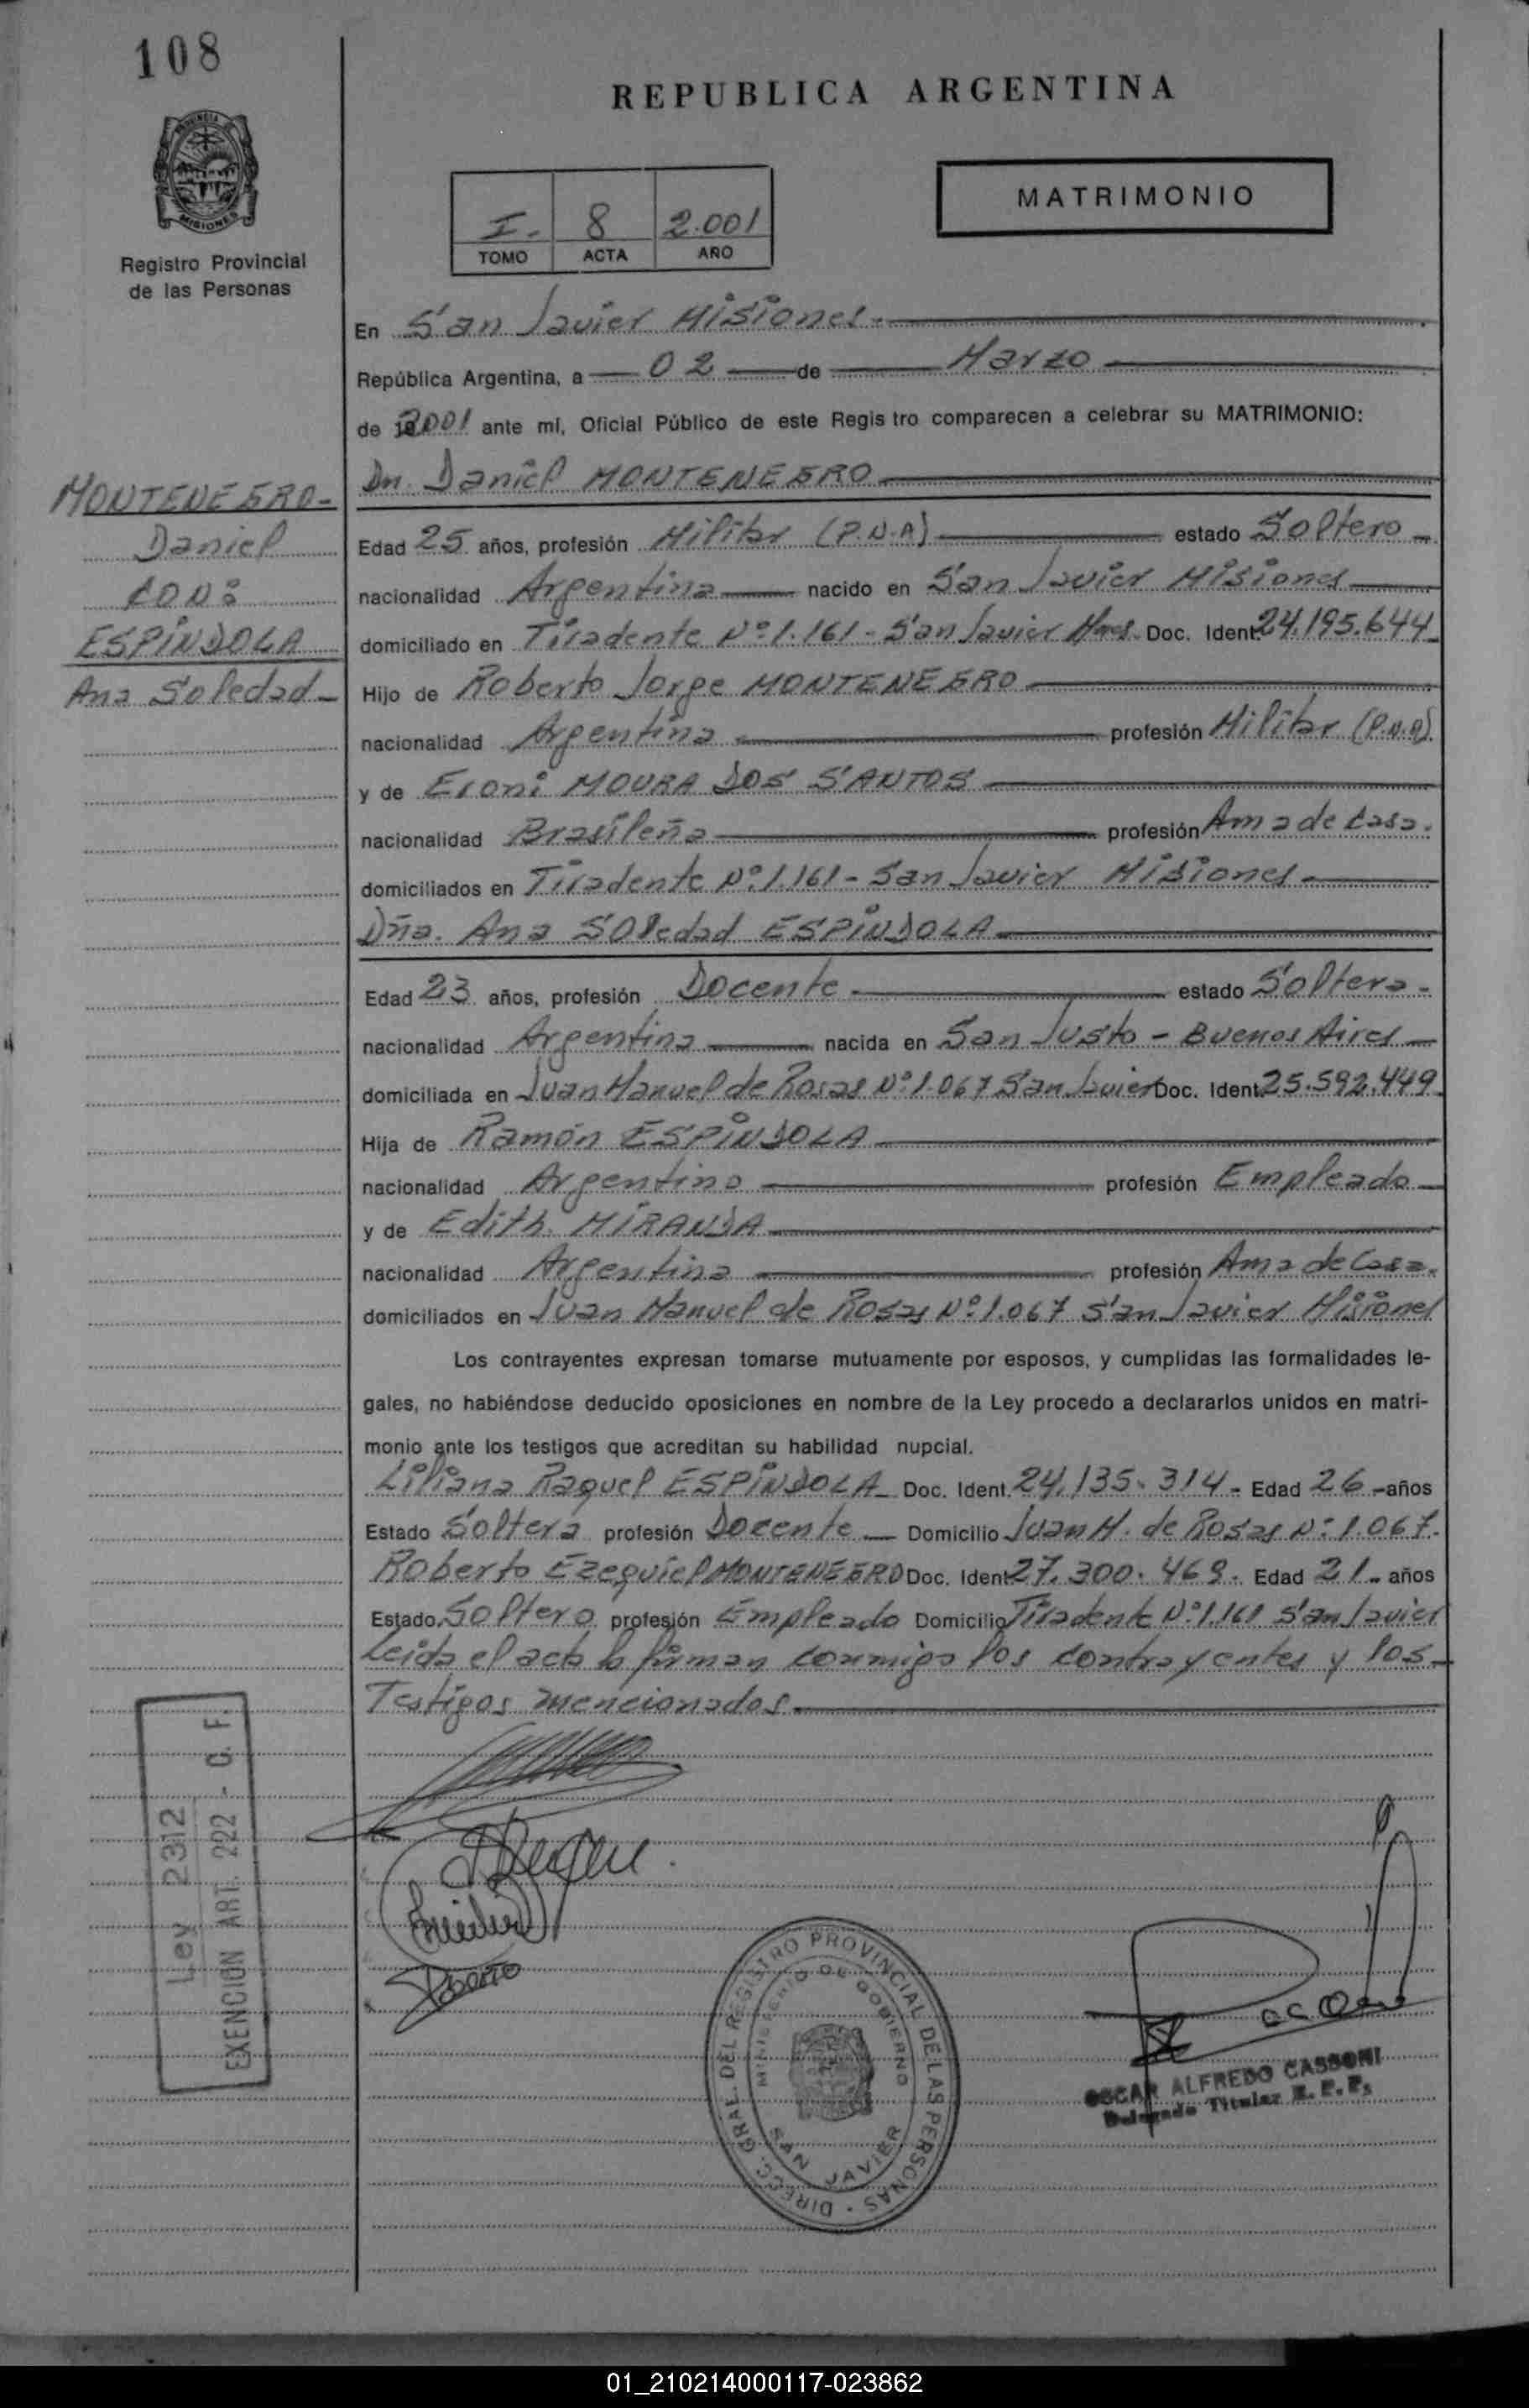 108
REPUBLICA ARGENTINA
PROVINCIA
MISIONES
MATRIMONIO
I. 8 2.001
TOMO ACTA AÑO
Registro Provincial
de las Personas
En San Javier Misiones.
República Argentina, a 02 de Marzo
de 2001 ante mí, Oficial Público de este Regis tro comparecen a celebrar su MATRIMONIO:
Dn. Daniel MONTENEGRO
MONTENEGRO-
Daniel
CON:
ESPÍNDOLA
Ana Soledad-
Edad 25 años, profesión Militar (P.N.A) estado Soltero
nacionalidad Argentina nacido en San Javier Misiones
domiciliado en Tiradente Nº 1.161 - San Javier Mnes. Doc. Ident. 24.195.644
Hijo de Roberto Jorge MONTENEGRO
nacionalidad Argentina profesión Militar (P.N.A).
y de Eroni MOURA DOS SANTOS
nacionalidad Brasileña profesión Ama de Casa.
domiciliados en Tiradente Nº 1.161 - San Javier Misiones
Dña. Ana SOledad ESPÍNDOLA
Edad 23 años, profesión Docente estado Soltera-
nacionalidad Argentina nacida en San Justo - Buenos Aires
domiciliada en Juan Manuel de Rosas Nº 1.067 San Javier Doc. Ident. 25.592.449
Hija de Ramón ESPÍNDOLA
nacionalidad Argentino profesión Empleado
y de Edith MIRANDA
nacionalidad Argentina profesión Ama de Casa.
domiciliados en Juan Manuel de Rosas Nº 1.067 San Javier Misiones
Los contrayentes expresan tomarse mutuamente por esposos, y cumplidas las formalidades le-
gales, no habiéndose deducido oposiciones en nombre de la Ley procedo a declararlos unidos en matri-
monio ante los testigos que acreditan su habilidad nupcial.
Liliana Raquel ESPÍNDOLA Doc. Ident. 24.135.314. Edad 26 años
Estado Soltera profesión Docente Domicilio Juan M. de Rosas Nº 1.067.
Roberto Ezequiel MONTENEGRO Doc. Ident. 27.300.469. Edad 21 años
Estado Soltero profesión Empleado Domicilio Tiradente Nº 1.161 San Javier
Leida el acta la firman conmigo los contrayentes y los
Testigos mencionados.
Ley 2312
EXENCION ART. 222 - C. F.
DIRECC. GRAL. DEL REGISTRO PROVINCIAL DE LAS PERSONAS
MINISTERIO DE GOBIERNO
SAN JAVIER
OSCAR ALFREDO CASSONI
Delegado Titular R. P. P.
01_210214000117-023862